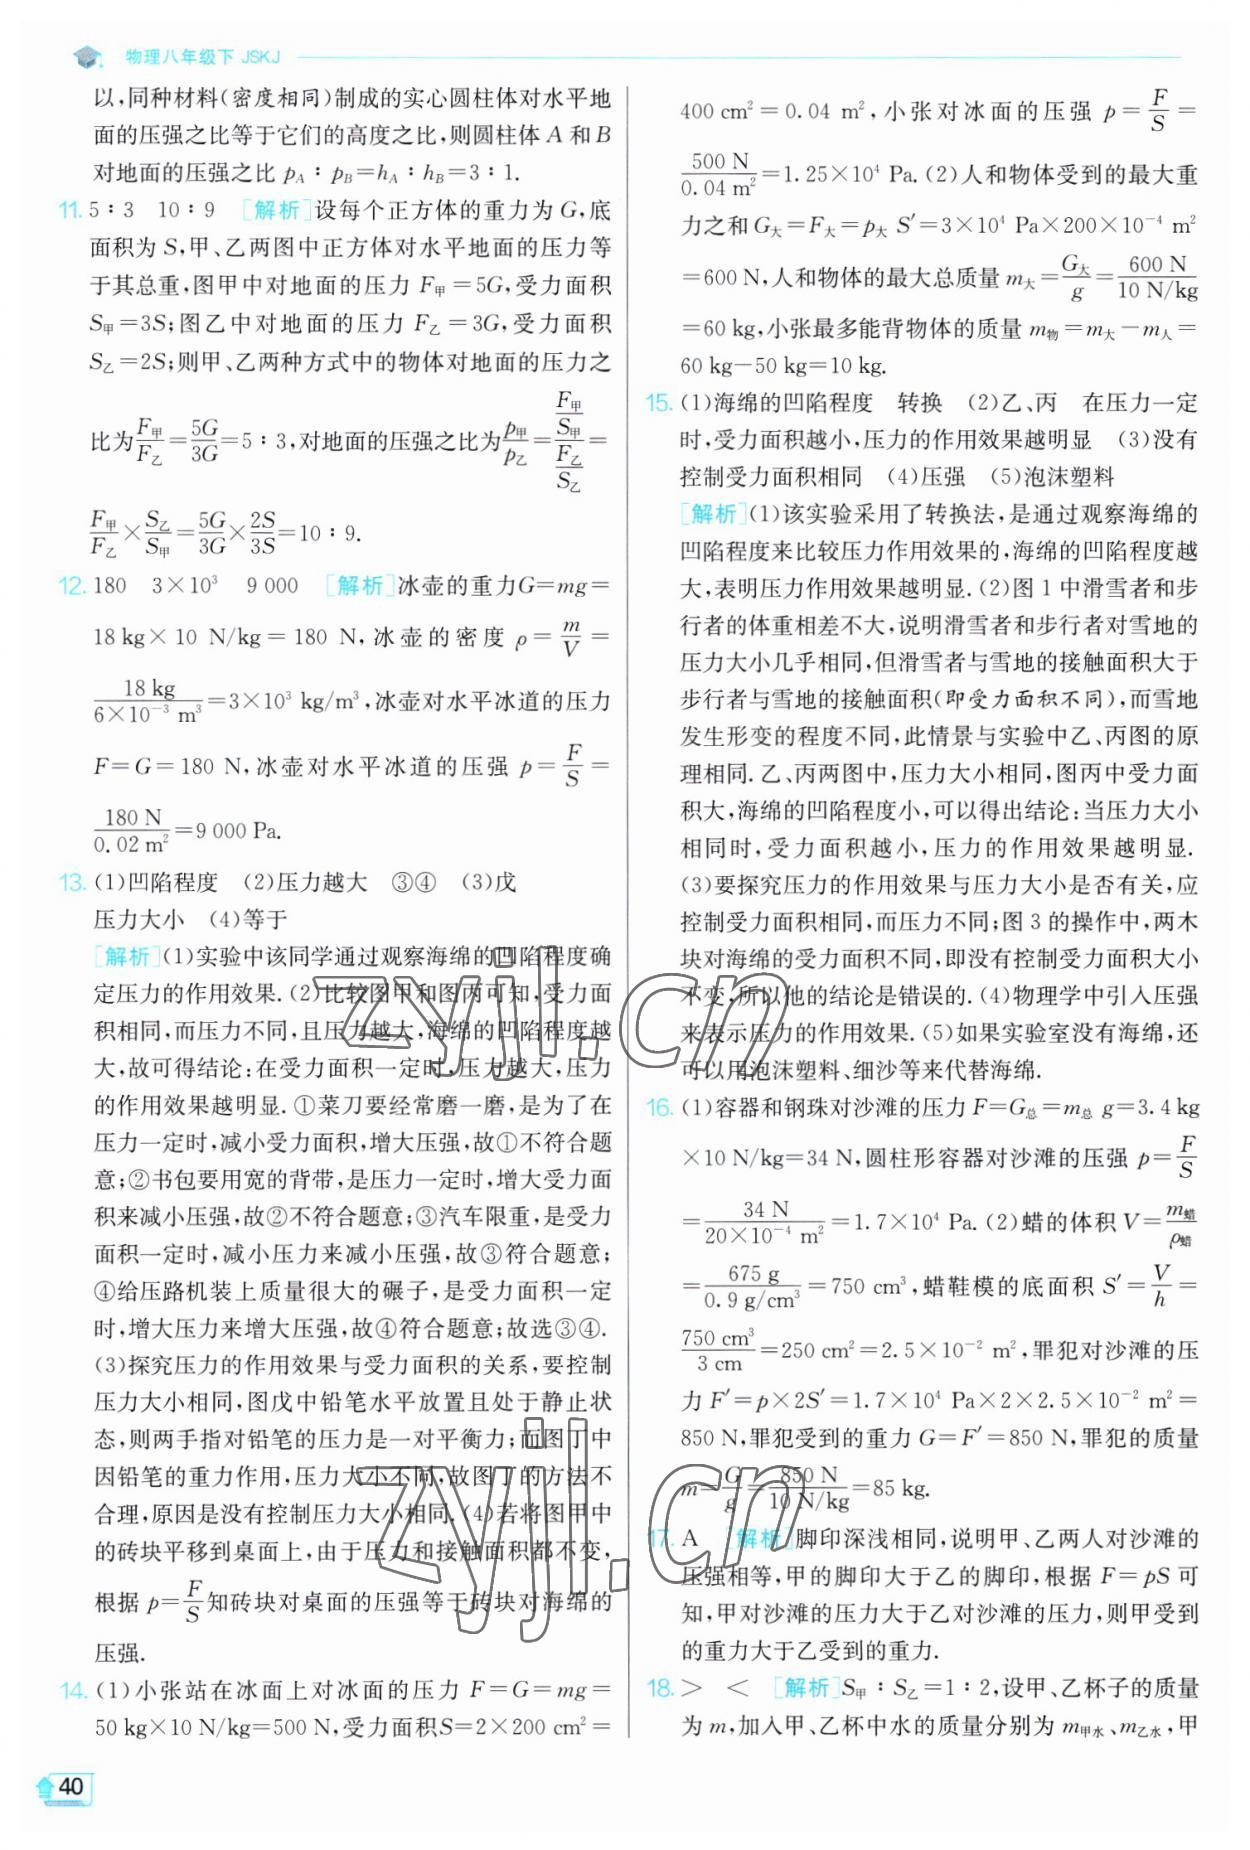 物理八年级下 JSKJ
以,同种材料(密度相同)制成的实心圆柱体对水平地
面的压强之比等于它们的高度之比,则圆柱体 A 和 B
对地面的压强之比 p_A∶p_B=h_A∶h_B=3∶1.
11. 5∶3 10∶9 [解析]设每个正方体的重力为 G,底
面积为 S,甲、乙两图中正方体对水平地面的压力等
于其总重,图甲中对地面的压力 F甲=5G,受力面积
S甲=3S;图乙中对地面的压力 F乙=3G,受力面积
S乙=2S;则甲、乙两种方式中的物体对地面的压力之
比为F甲/F乙=5G/3G=5∶3,对地面的压强之比为p甲/p乙=(F甲/S甲)/(F乙/S乙)=
F甲/F乙×S乙/S甲=5G/3G×2S/3S=10∶9.
12. 180 3×10³ 9 000 [解析]冰壶的重力G=mg=
18 kg×10 N/kg=180 N,冰壶的密度 ρ=m/V=
18 kg/(6×10⁻³ m³)=3×10³ kg/m³,冰壶对水平冰道的压力
F=G=180 N,冰壶对水平冰道的压强 p=F/S=
180 N/0.02 m²=9 000 Pa.
13. (1)凹陷程度 (2)压力越大 ③④ (3)戊
压力大小 (4)等于
[解析](1)实验中该同学通过观察海绵的凹陷程度确
定压力的作用效果.(2)比较图甲和图丙可知,受力面
积相同,而压力不同,且压力越大,海绵的凹陷程度越
大,故可得结论:在受力面积一定时,压力越大,压力
的作用效果越明显.①菜刀要经常磨一磨,是为了在
压力一定时,减小受力面积,增大压强,故①不符合题
意;②书包要用宽的背带,是压力一定时,增大受力面
积来减小压强,故②不符合题意;③汽车限重,是受力
面积一定时,减小压力来减小压强,故③符合题意;
④给压路机装上质量很大的碾子,是受力面积一定
时,增大压力来增大压强,故④符合题意;故选③④.
(3)探究压力的作用效果与受力面积的关系,要控制
压力大小相同,图戊中铅笔水平放置且处于静止状
态,则两手指对铅笔的压力是一对平衡力;而图丁中
因铅笔的重力作用,压力大小不同,故图丁的方法不
合理,原因是没有控制压力大小相同.(4)若将图甲中
的砖块平移到桌面上,由于压力和接触面积都不变,
根据 p=F/S知砖块对桌面的压强等于砖块对海绵的
压强.
14. (1)小张站在冰面上对冰面的压力 F=G=mg=
50 kg×10 N/kg=500 N,受力面积S=2×200 cm²=
40
400 cm²=0.04 m²,小张对冰面的压强 p=F/S=
500 N/0.04 m²=1.25×10⁴ Pa.(2)人和物体受到的最大重
力之和 G大=F大=p大 S′=3×10⁴ Pa×200×10⁻⁴ m²
=600 N,人和物体的最大总质量 m大=G大/g=600 N/10 N/kg
=60 kg,小张最多能背物体的质量 m物=m大-m人=
60 kg-50 kg=10 kg.
15. (1)海绵的凹陷程度 转换 (2)乙、丙 在压力一定
时,受力面积越小,压力的作用效果越明显 (3)没有
控制受力面积相同 (4)压强 (5)泡沫塑料
[解析](1)该实验采用了转换法,是通过观察海绵的
凹陷程度来比较压力作用效果的,海绵的凹陷程度越
大,表明压力作用效果越明显.(2)图 1 中滑雪者和步
行者的体重相差不大,说明滑雪者和步行者对雪地的
压力大小几乎相同,但滑雪者与雪地的接触面积大于
步行者与雪地的接触面积(即受力面积不同),而雪地
发生形变的程度不同,此情景与实验中乙、丙图的原
理相同.乙、丙两图中,压力大小相同,图丙中受力面
积大,海绵的凹陷程度小,可以得出结论:当压力大小
相同时,受力面积越小,压力的作用效果越明显.
(3)要探究压力的作用效果与压力大小是否有关,应
控制受力面积相同,而压力不同;图 3 的操作中,两木
块对海绵的受力面积不同,即没有控制受力面积大小
不变,所以他的结论是错误的.(4)物理学中引入压强
来表示压力的作用效果.(5)如果实验室没有海绵,还
可以用泡沫塑料、细沙等来代替海绵.
16. (1)容器和钢珠对沙滩的压力 F=G总=m总 g=3.4 kg
×10 N/kg=34 N,圆柱形容器对沙滩的压强 p=F/S
=34 N/(20×10⁻⁴ m²)=1.7×10⁴ Pa.(2)蜡的体积 V=m蜡/ρ蜡
=675 g/(0.9 g/cm³)=750 cm³,蜡鞋模的底面积 S′=V/h=
750 cm³/3 cm=250 cm²=2.5×10⁻² m²,罪犯对沙滩的压
力 F′=p×2S′=1.7×10⁴ Pa×2×2.5×10⁻² m²=
850 N,罪犯受到的重力 G=F′=850 N,罪犯的质量
m=G/g=850 N/10 N/kg=85 kg.
17. A [解析]脚印深浅相同,说明甲、乙两人对沙滩的
压强相等,甲的脚印大于乙的脚印,根据 F=pS 可
知,甲对沙滩的压力大于乙对沙滩的压力,则甲受到
的重力大于乙受到的重力.
18. > < [解析]S甲∶S乙=1∶2,设甲、乙杯子的质量
为 m,加入甲、乙杯中水的质量分别为 m甲水、m乙水,甲
zyjl.cn
zyjl.cn